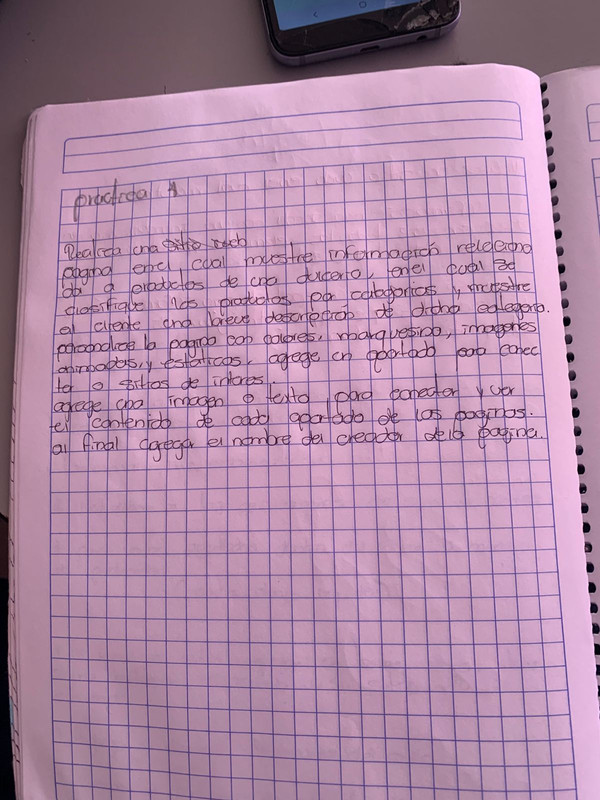 practica 4
Realiza una sitio web
pagina en el cual muestre información relaciona
da a productos de una dulceria, en el cual se
clasifique los productos por categorias y muestre
al cliente una breve descripción de dicha categoria.
personalice la pagina con colores, marquesina, imagenes
animadas, y estaticas, agrege un apartado para conec
tar a sitios de interes.
agrege una imagen o texto para conectar y ver
el contenido de cada apartado de las paginas.
al final agrega el nombre del creador de la pagina.